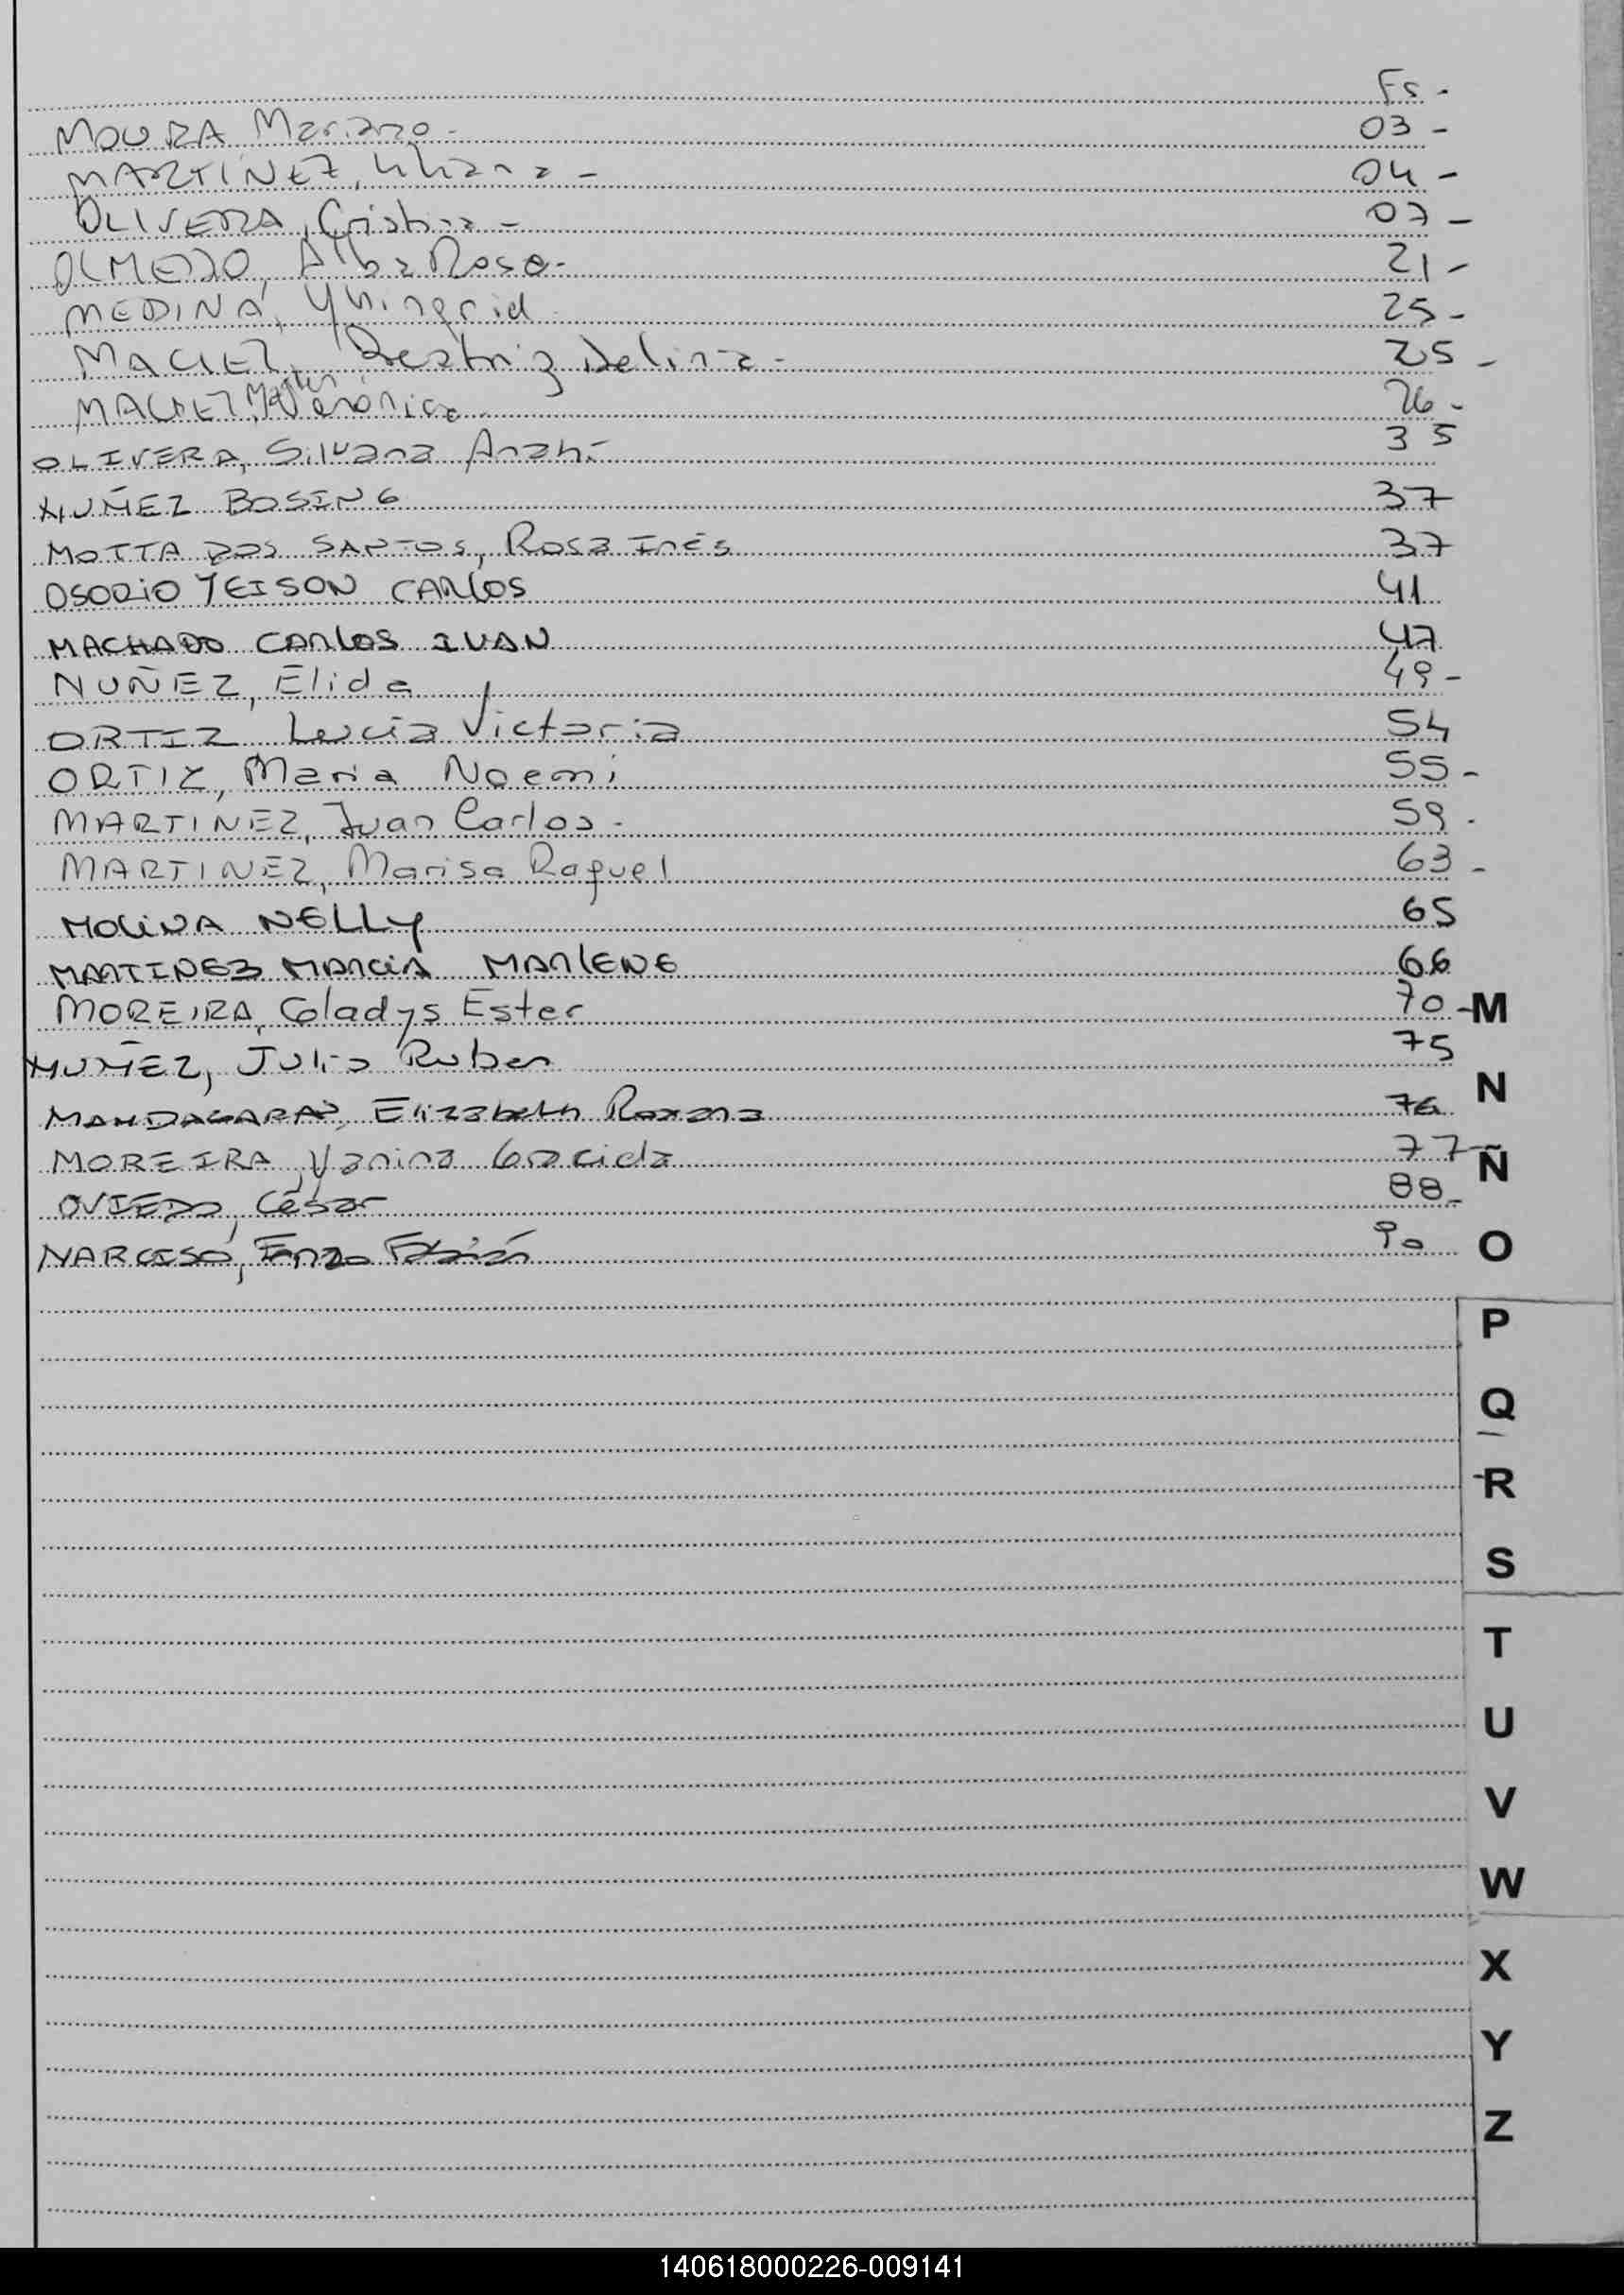 Fs -
MOURA Mariano - 03 -
MARTINEZ, Liliana - 04 -
OLIVEIRA, Cristina - 07 -
OLMEDO, Alba Rosa - 21 -
MEDINA, Yhingrid 25 -
MACIEL, Beatriz Delina - 25 -
MACIEL, Verónica 26 -
OLIVERA, Silvana Anahí 35
NUÑEZ BOSING 37
MOTTA DOS SANTOS, Rosa Inés 37
OSORIO YEISON CARLOS 41
MACHADO CARLOS IVAN 47
NUÑEZ, Elida 49 -
ORTIZ Lucía Victoria 54
ORTIZ, Maria Noemi 55 -
MARTINEZ, Juan Carlos - 59 -
MARTINEZ, Marisa Raquel 63 -
MOLINA NELLY 65
MARTINEZ MARCIA MARLENE 66
MOREIRA, Gladys Ester 70 - M
NUÑEZ, Julio Ruben 75
N
Elizabeth Roxana 76
MOREIRA, Yanina Gracida 77
Ñ
OVIEDO, César 88 -
NARCISO, Enzo Fabián 90
O
P
Q
R
S
T
U
V
W
X
Y
Z
140618000226-009141